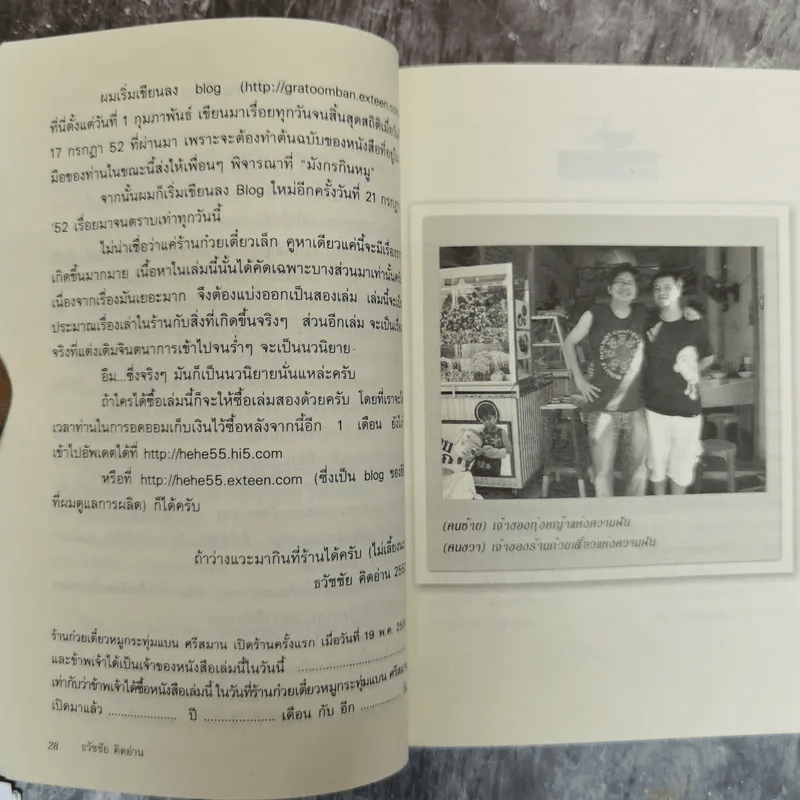 ผมเริ่มเขียนลง blog (http://gratoomban.exteen.com
ที่นี่ตั้งแต่วันที่ 1 กุมภาพันธ์ เขียนมาเรื่อยทุกวันจนสิ้นสุดสถิติเมื่อ
17 กรกฎา 52 ที่ผ่านมา เพราะจะต้องทำต้นฉบับของหนังสือที่อยู่ใน
มือของท่านในขณะนี้ส่งให้เพื่อนๆ พิจารณาที่ "มังกรกินหมู"
จากนั้นผมก็เริ่มเขียนลง Blog ใหม่อีกครั้งวันที่ 21 กรกฎา
'52 เรื่อยมาจนตราบเท่าทุกวันนี้
ไม่น่าเชื่อว่าแค่ร้านก๋วยเตี๋ยวเล็ก คูหาเดียวแค่นี้จะมีเรื่อง
เกิดขึ้นมากมาย เนื้อหาในเล่มนี้นั้นได้คัดเฉพาะบางส่วนมาเท่านั้น
เนื่องจากเรื่องมันเยอะมาก จึงต้องแบ่งออกเป็นสองเล่ม เล่มนี้จะ
ประมาณเรื่องเล่าในร้านกับสิ่งที่เกิดขึ้นจริงๆ ส่วนอีกเล่ม จะเป็น
จริงที่แต่งเติมจินตนาการเข้าไปจนร่ำๆ จะเป็นนวนิยาย
อืม...ซึ่งจริงๆ มันก็เป็นนวนิยายนั่นแหล่ะครับ
ถ้าใครได้ซื้อเล่มนี้ก็จะให้ซื้อเล่มสองด้วยครับ โดยที่เราจะ
เวลาท่านในการอดออมเก็บเงินไว้ซื้อหลังจากนี้อีก 1 เดือน ยังไง
เข้าไปอัพเดตได้ที่ http://hehe55.hi5.com
หรือที่ http://hehe55.exteen.com (ซึ่งเป็น blog ของ
ที่ผมดูแลการผลิต) ก็ได้ครับ
ถ้าว่างแวะมากินที่ร้านได้ครับ (ไม่เลี้ยง
ธวัชชัย คิดอ่าน
ร้านก๋วยเตี๋ยวหมูกระทุ่มแบน ศรีสมาน เปิดร้านครั้งแรก เมื่อวันที่ 19 พ.ค.
และข้าพเจ้าได้เป็นเจ้าของหนังสือเล่มนี้ในวันนี้ ....................
เท่ากับว่าข้าพเจ้าได้ซื้อหนังสือเล่มนี้ ในวันที่ร้านก๋วยเตี๋ยวหมูกระทุ่มแบน ศรีสมาน
เปิดมาแล้ว .................... ปี .................... เดือน กับ อีก ............
28 ธวัชชัย คิดอ่าน
(คนซ้าย) เจ้าของทุ่งหญ้าแห่งความฝัน
(คนขวา) เจ้าของร้านก๋วยเตี๋ยวแห่งความฝัน